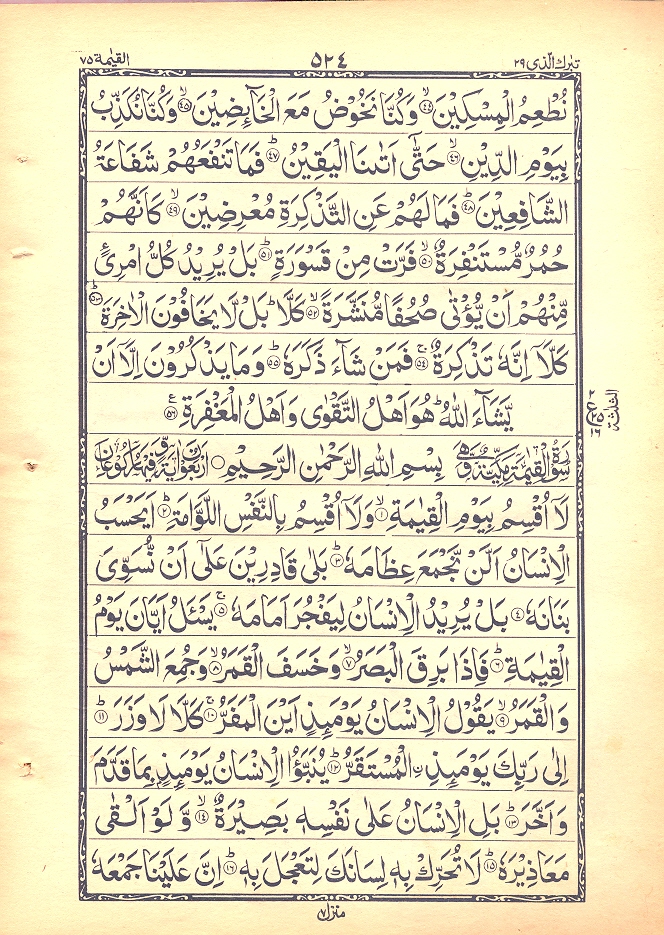 تبرك الّذى ٢٩
٥٢٤
القيٰمة ٧٥
نُطْعِمُ الْمِسْكِيْنَ ۙ﴿٤٤﴾ وَكُنَّا نَخُوْضُ مَعَ الْخَآئِضِيْنَ ۙ﴿٤٥﴾ وَكُنَّا نُكَذِّبُ
بِيَوْمِ الدِّيْنِ ۙ﴿٤٦﴾ حَتّٰٓى اَتٰىنَا الْيَقِيْنُ ؕ﴿٤٧﴾ فَمَا تَنْفَعُهُمْ شَفَاعَةُ
الشَّافِعِيْنَ ؕ﴿٤٨﴾ فَمَا لَهُمْ عَنِ التَّذْكِرَةِ مُعْرِضِيْنَ ۙ﴿٤٩﴾ كَاَنَّهُمْ
حُمُرٌ مُّسْتَنْفِرَةٌ ۙ﴿٥٠﴾ فَرَّتْ مِنْ قَسْوَرَةٍ ؕ﴿٥١﴾ بَلْ يُرِيْدُ كُلُّ امْرِئٍ
مِّنْهُمْ اَنْ يُّؤْتٰى صُحُفًا مُّنَشَّرَةً ۙ﴿٥٢﴾ كَلَّا ؕ بَلْ لَّا يَخَافُوْنَ الْاٰخِرَةَ ؕ﴿٥٣﴾
كَلَّآ اِنَّهٗ تَذْكِرَةٌ ۚ﴿٥٤﴾ فَمَنْ شَآءَ ذَكَرَهٗ ؕ﴿٥٥﴾ وَمَا يَذْكُرُوْنَ اِلَّآ اَنْ
يَّشَآءَ اللّٰهُ ؕ هُوَ اَهْلُ التَّقْوٰى وَاَهْلُ الْمَغْفِرَةِ ﴿٥٦﴾ ع
سُوْرَةُ الْقِيٰمَةِ مَكِّيَّةٌ وَّهِىَ بِسْمِ اللّٰهِ الرَّحْمٰنِ الرَّحِيْمِ ۝ اَرْبَعُوْنَ اٰيَةً وَّفِيْهَا رُكُوْعَانِ
لَآ اُقْسِمُ بِيَوْمِ الْقِيٰمَةِ ۙ﴿١﴾ وَلَآ اُقْسِمُ بِالنَّفْسِ اللَّوَّامَةِ ؕ﴿٢﴾ اَيَحْسَبُ
الْاِنْسَانُ اَلَّنْ نَّجْمَعَ عِظَامَهٗ ؕ﴿٣﴾ بَلٰى قَادِرِيْنَ عَلٰٓى اَنْ نُّسَوِّىَ
بَنَانَهٗ ﴿٤﴾ بَلْ يُرِيْدُ الْاِنْسَانُ لِيَفْجُرَ اَمَامَهٗ ۚ﴿٥﴾ يَسْـَٔلُ اَيَّانَ يَوْمُ
الْقِيٰمَةِ ؕ﴿٦﴾ فَاِذَا بَرِقَ الْبَصَرُ ۙ﴿٧﴾ وَخَسَفَ الْقَمَرُ ۙ﴿٨﴾ وَجُمِعَ الشَّمْسُ
وَالْقَمَرُ ۙ﴿٩﴾ يَقُوْلُ الْاِنْسَانُ يَوْمَئِذٍ اَيْنَ الْمَفَرُّ ۚ﴿١٠﴾ كَلَّا لَا وَزَرَ ؕ﴿١١﴾
اِلٰى رَبِّكَ يَوْمَئِذِ ۣالْمُسْتَقَرُّ ؕ﴿١٢﴾ يُنَبَّؤُا الْاِنْسَانُ يَوْمَئِذٍۭ بِمَا قَدَّمَ
وَاَخَّرَ ؕ﴿١٣﴾ بَلِ الْاِنْسَانُ عَلٰى نَفْسِهٖ بَصِيْرَةٌ ۙ﴿١٤﴾ وَّلَوْ اَلْقٰى
مَعَاذِيْرَهٗ ؕ﴿١٥﴾ لَا تُحَرِّكْ بِهٖ لِسَانَكَ لِتَعْجَلَ بِهٖ ؕ﴿١٦﴾ اِنَّ عَلَيْنَا جَمْعَهٗ
منزل ٧
٢
ع
٢٥
١٦
الثلثة